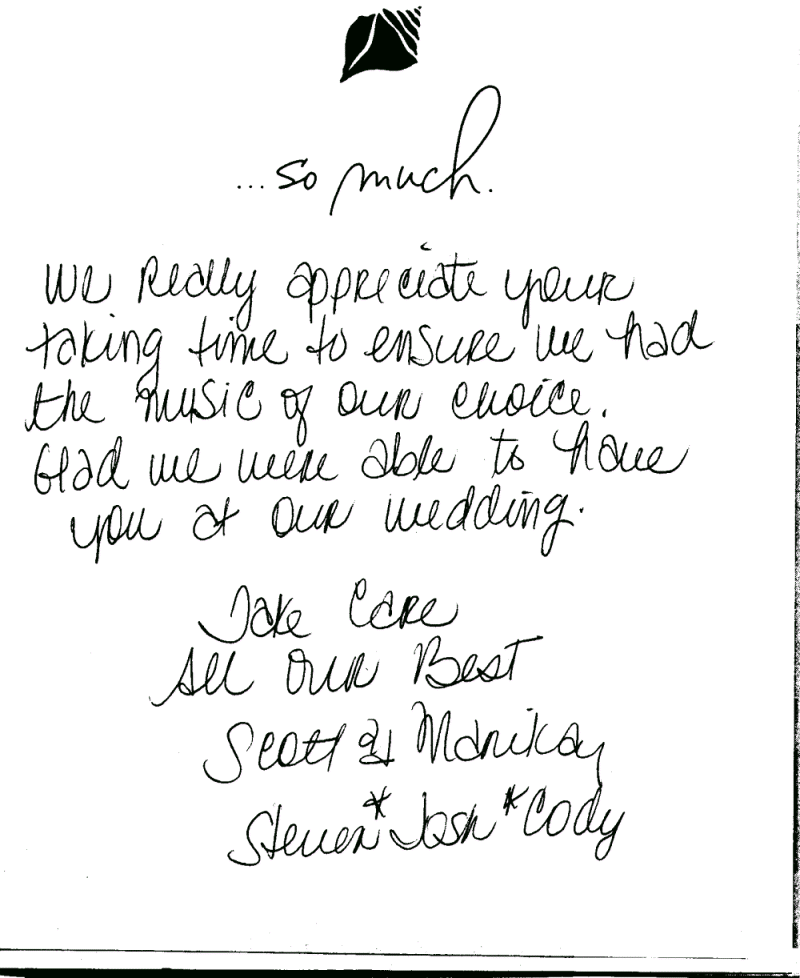 ...so much.
We Really appreciate your
taking time to ensure we had
the music of our choice.
Glad we were able to have
you at our wedding.
Take Care
All Our Best
Scott & Marikay
Steven * Josh * Cody